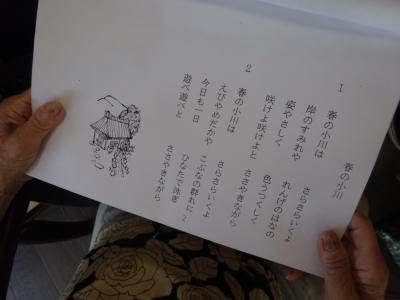 春の小川
1
春の小川は　さらさらいくよ
岸のすみれや　れんげのはなの
姿やさしく　色うつくしく
咲けよ咲けよと　ささやきながら
2
春の小川は　さらさらいくよ
えびやめだかや　こぶなの群れに
今日も一日　ひなたで泳ぎ
遊べ遊べと　ささやきながら
2